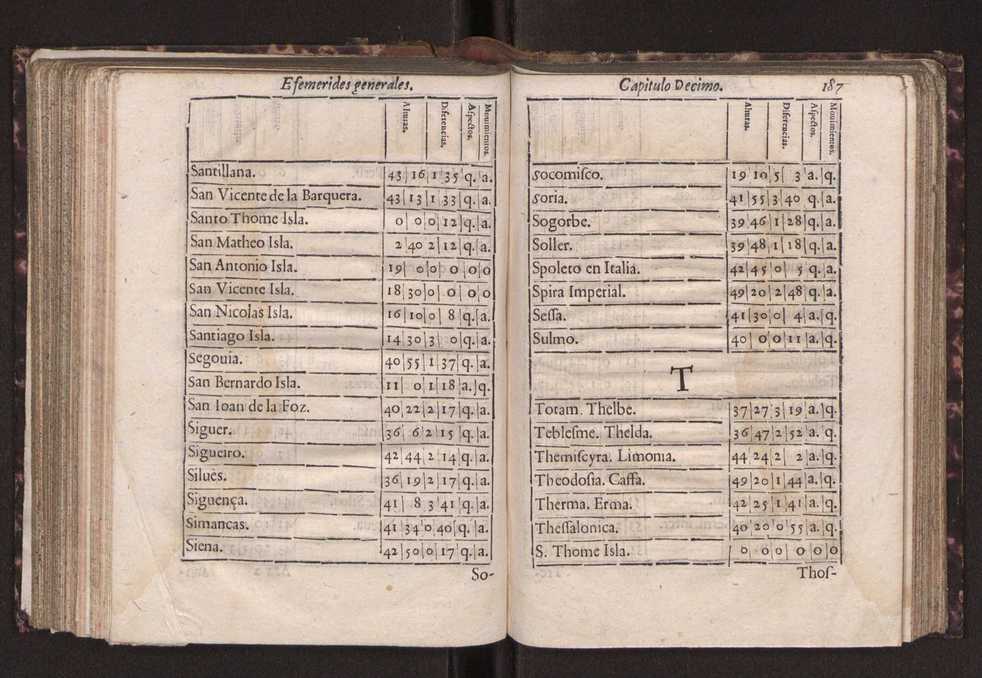 Efemerides generales.
Alturas. Diferencias. Aſpectos. Mouimientos.
Santillana. 43 16 1 35 q. a.
San Vicente de la Barquera. 43 13 1 33 q. a.
Santo Thome Isla. 0 0 0 12 q. a.
San Matheo Isla. 2 40 2 12 q. a.
San Antonio Isla. 19 0 0 0 0 0
San Vicente Isla. 18 30 0 0 0 0
San Nicolas Isla. 16 10 0 8 q. a.
Santiago Isla. 14 30 3 0 q. a.
Segouia. 40 55 1 37 q. a.
San Bernardo Isla. 11 0 1 18 a. q.
San Ioan de la Foz. 40 22 2 17 q. a.
Siguer. 36 6 2 15 q. a.
Sigueiro. 42 44 2 14 q. a.
Silues. 36 19 2 17 q. a.
Siguença. 41 8 3 41 q. a.
Simancas. 41 34 0 40 q. a.
Siena. 42 50 0 17 q. a.
So-
Capitulo Decimo. 187
Alturas. Diferencias. Aſpectos. Mouimientos.
socomiſco. 19 10 5 3 a. q.
soria. 41 55 3 40 q. a.
Sogorbe. 39 46 1 28 q. a.
Soller. 39 48 1 18 q. a.
Spoleto en Italia. 42 45 0 5 q. a.
Spira Imperial. 49 20 2 48 q. a.
Seſſa. 41 30 0 4 a. q.
Sulmo. 40 0 0 11 a. q.
T
Totam. Thelbe. 37 27 3 19 a. q.
Tebleſme. Thelda. 36 47 2 52 a. q.
Themiſcyra. Limonia. 44 24 2 2 a. q.
Theodoſia. Caffa. 49 20 1 44 a. q.
Therma. Erma. 42 25 1 41 a. q.
Theſſalonica. 40 20 0 55 a. q.
S. Thome Isla. 0 0 0 0 0 0
Thoſ-